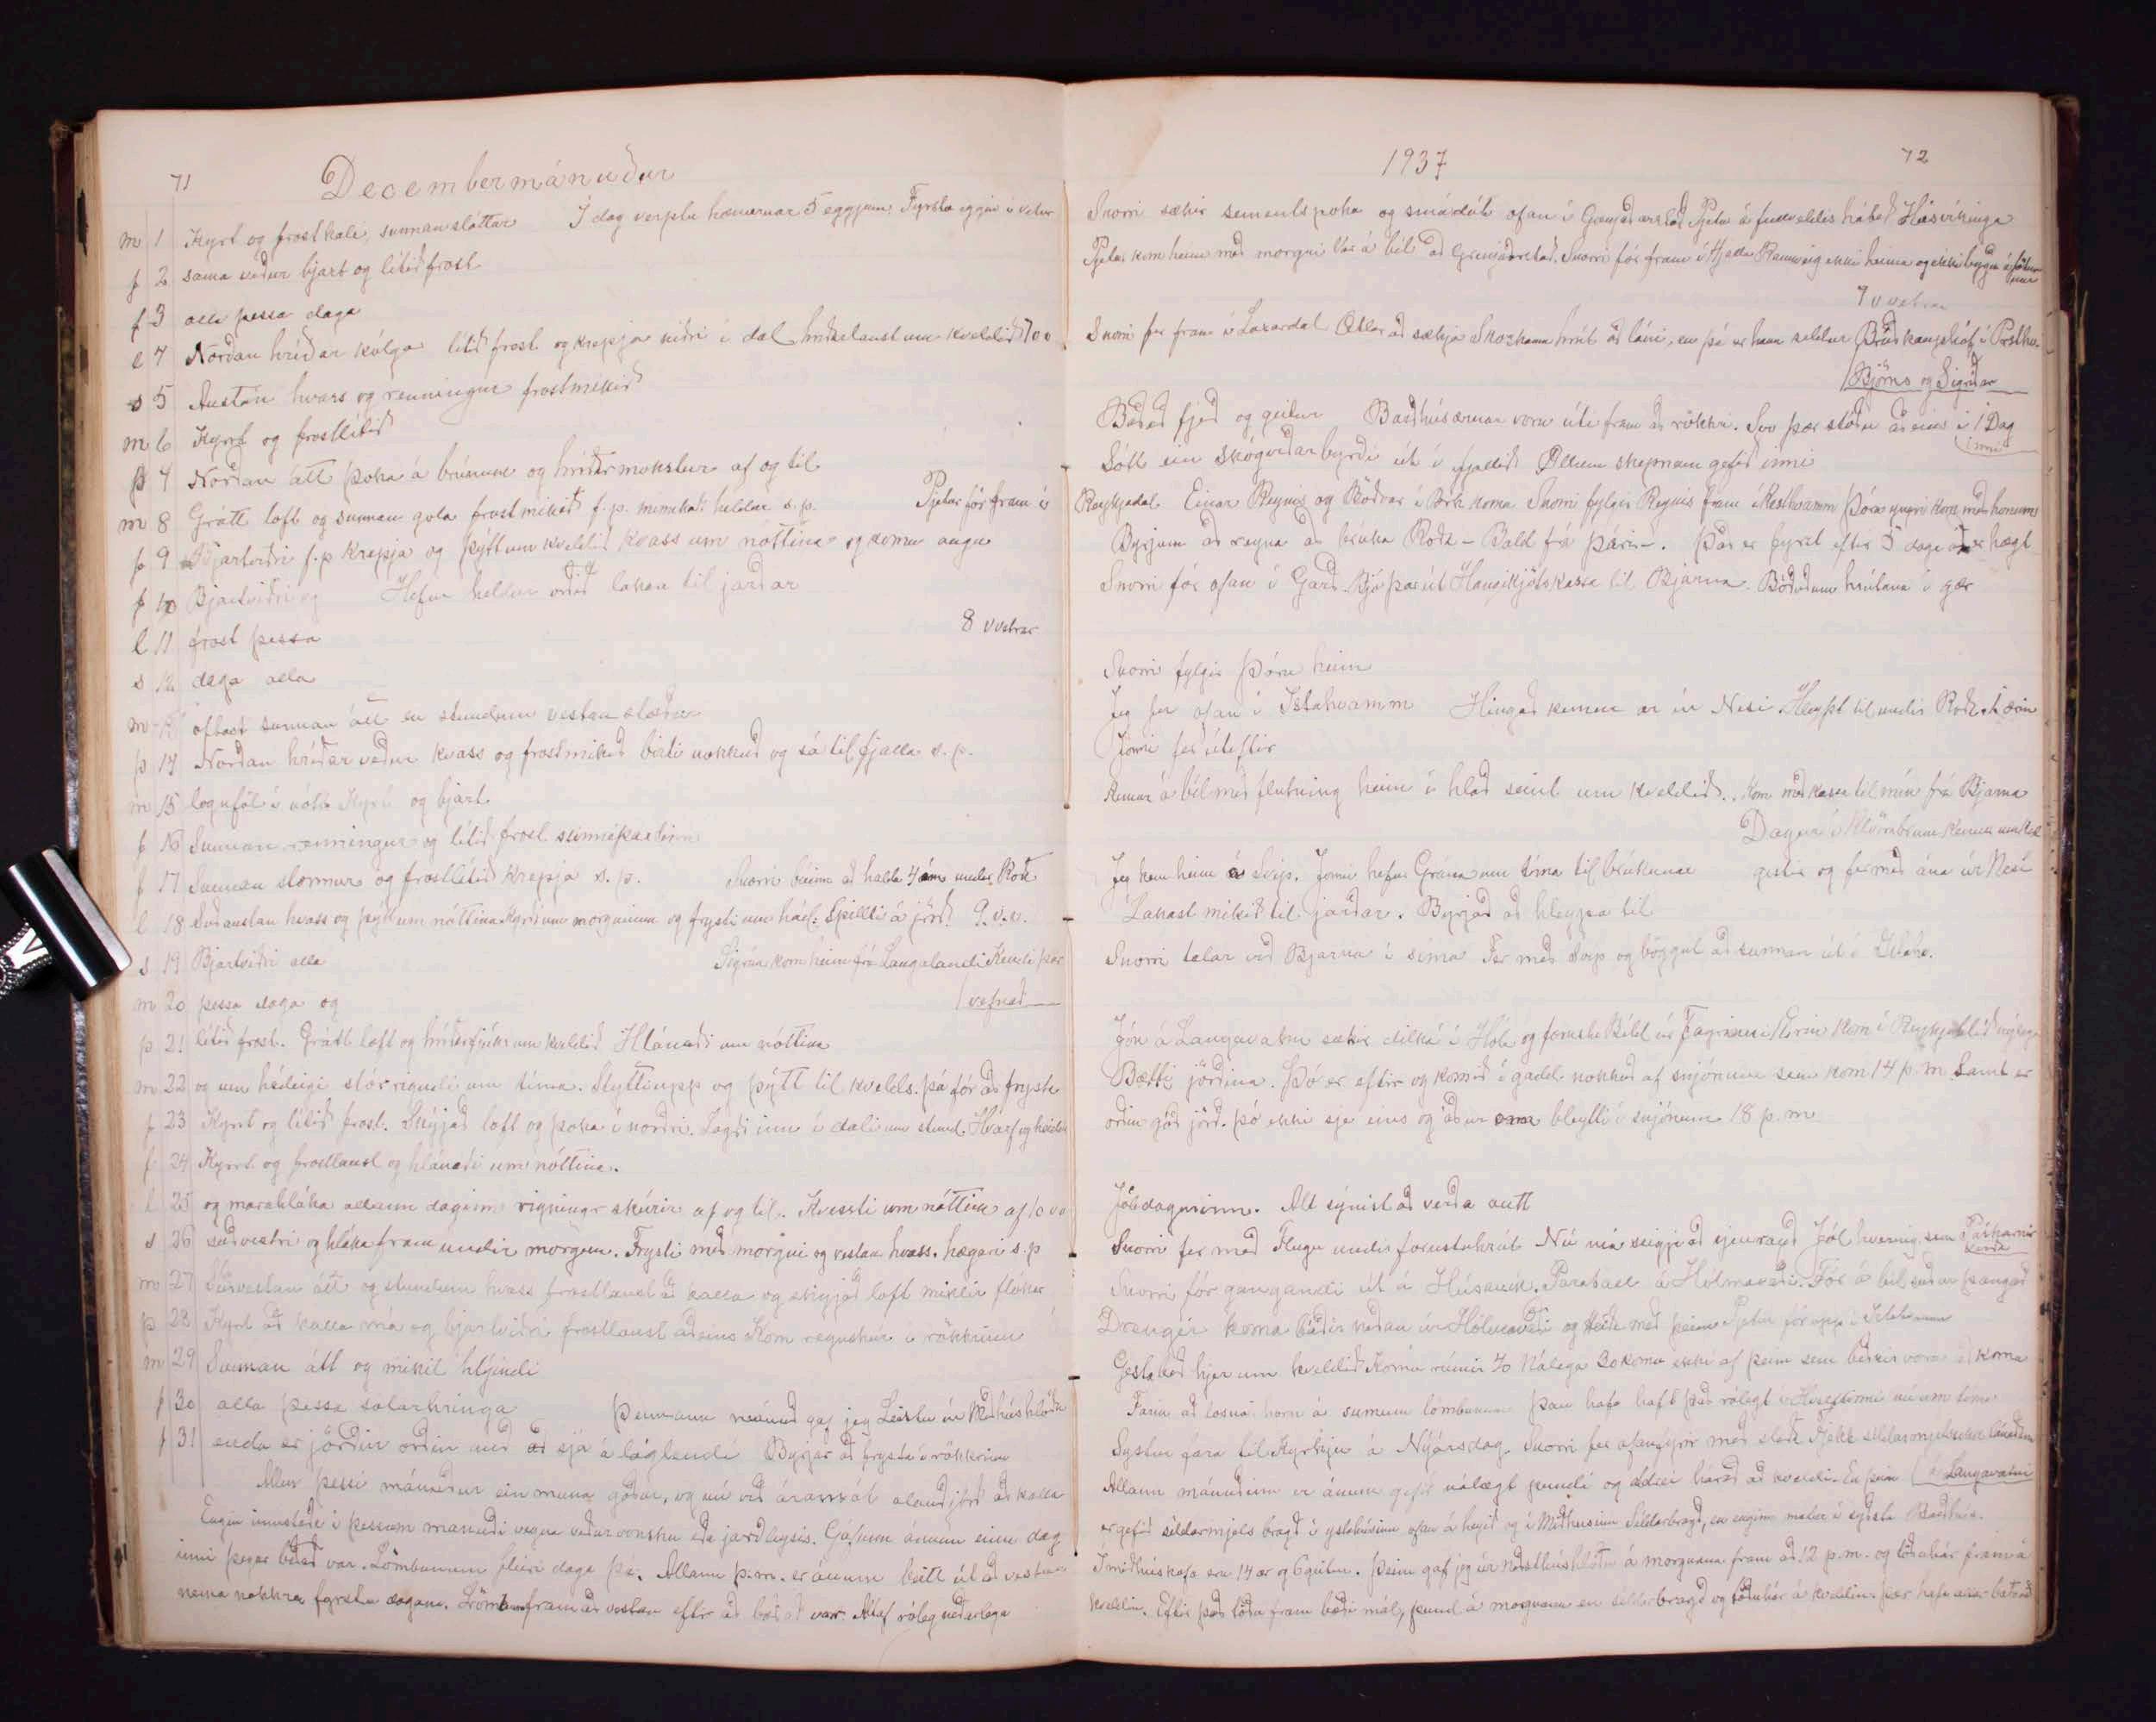 71
Decembermánuður
m 1 Kyrt og frostkali, sunnan sláttur Í dag verptu hænurnar 5 eggjum. Fyrstu eggin í vetur
þ 2 sama veður bjart og lítið frost
f 3 alla þessa daga
l 4 Norðan hríðar kólga lítið frost og krepja niðri í dal hríðarlaust um kveldið 7 0 0
s 5 Austan hvass og renningur frostmikið
m 6 Kyrt og frostlítið
þ 7 Norðan átt þoka á brúnum og hríðarmokstur af og til
m 8 Grátt loft og sunnan gola frostmikið f.p. minnkaði heldur s.p. Pjetur fór fram í
f 9 Bjartviðri f.p krepja og þýtt um kveldið hvass um nóttina og komu augu
f 10 Bjartviðri og Hefur heldur orðið lakara til jarðar
l 11 frost þessa 8 v vetrar
s 12 daga alla
m 13 oftast sunnan átt en stundum vestan
þ 14 Norðan hríðar veður hvass og frostmikið birti nokkuð og sá til fjalla s.p.
m 15 lognföl í nótt Kyrt og bjart
f 16 Sunnan renningur og lítið frost seinnipartinn
f 17 Sunnan stormur og frostlítið krepja s.p. Snorri beinn að halda 4 ám undir Roða
l 18 Suðaustan hvass og þýtt um nóttina Kyrði um morguninn og frysti um hád. Spillti á jörð. 9.v.v.
s 19 Bjartviðri alla Sigrún kom heim frá Laugalandi Kendi þar
m 20 þessa daga og vefnað
þ 21 lítið frost. Grátt loft og hríðarfjúk um kveldið Hlánaði um nóttina
m 22 og um hádeigi stórrigndi um tíma. Stytti upp og þýtt til kvelds. þá fór að frysta
f 23 Kyrt og lítið frost. Skýjað loft og þoka í norðri. Lagði inn í dalinn stund. Hvarf og heiður
f 24 Kyrt og frostlaust og hlánaði um nóttina.
l 25 og marahláka allann daginn rigningar skúrir af og til. Hvessti um nóttina af
s 26 suðvestri og hláka fram undir morgun. Frysti með morgni og vestan hvass. hægari s.p
m 27 Suðvestan átt og stundum hvass frostlaust að kalla og skýjað loft miklir flókar
þ 28 Kyrt að kalla má og bjartviðri frostlaust aðeins Kom regnskúr í rökkrinu
m 29 Sunnan átt og mikil hlýindi
f 30 alla þessa sólarhringa Þennann mánuð gaf jeg
f 31 enda er jörðin orðin auð að sjá á láglendi Byrjar að frysta í rökkrinu
Allur þessi mánuður einmuna góður, og nú við áramót alauð jörð að kalla
Engin innistaða í þessum mánuði vegna veðurvonsku eða jarðleysis. Gáfum ánum einn dag
inni þegar baðað var. Lömbunum fleiri daga þá. Allann þ.m. er ánum beitt út að vestan
nema nokkra fyrstu dagana. Lömbum fram að vestan eftir að baðað var. Altaf róleg

1937
72
Snorri sækir sementspoka og smádót ofan í Grenjaðarstað Pjetur á fullveldis hátíð Húsvíkinga
Pjetur kom heim með morgni Var á bíl að Grenjaðarstað. Snorri fór fram í Hjalla Rannveig ekki heima og ekki
7 v vetrar
Snorri fer fram í Laxárdal Ætlar að sækja hrút að láni, en þá er hann seldur Brúðkaupshóf í Presthv.
Björns og Sigríðar
Baðað fjeð og geitur Baðhúsærnar voru úti fram að rökkri. Svo þær stóðu aðeins í 1 Dag
inni
Sótt ein skógviðarbyrði út í fjallið Öllum skepnum gefið inni
Reykjadal. Einar Reynis og Böðvar í Brk. koma Snorri fylgir Reynis fram í Presthvamm Þóra yngri kom með honum
Byrjum að reyna að brúka Roða - Bald frá Þári. Það er fyrst eftir 5 daga að er hægt
Snorri fór ofan í Garð. Bjó þar út Hangikjötskassa til Bjarna. Böðuðum hrútana í gær
Snorri fylgir Þóru heim
Jeg fer ofan í Ystahvamm Hingað kemur ær úr Nesi Hleypt til undir Roða.
Jómi fer úteftir
Ragnar á bíl með flutning heim í hlað seint um kveldið. Kom með kassa til mín frá Bjarna
Dagur í Klömbrum kemur
Jeg kem heim á Svip. Jómi hefur Grána um tíma til brúkunar gestir og fer með ána úr Nesi
Lakast mikið til jarðar. Byrjað að hleypa til
Snorri talar við Bjarna í síma Fer með Svip og böggul að sunnan út í Ystahv.
Jón á Laugavatni sækir dilka í Hóla og forustu Bíld úr Fagranesi
Bætti jörðina. Þó er eftir og komið í gadd nokkuð af snjónum sem kom 14 þ.m. Samt er
orðin góð jörð. þó ekki sje eins og áður en bleytti í snjónum 18 þ.m
Jóladagurinn. Alt sýnist að verða autt
Snorri fer með Flugu undir forustuhrút Nú má segja að sjeu rauð Jól hvernig sem Páskarnir
verða
Snorri fór gangandi út á Húsavík. á Hólmavaði. Fór á bíl suður þangað
Drengir koma báðir neðan úr Hólmavaði og með þeim Pjetur fór uppí Ystahvamm
Gestaboð hjer um kveldið Koma rúmir 40 Nálega 30 koma ekki af þeim sem beðnir voru að koma
Farin að losna horn á sumum lömbunum Þau hafa haft það rólegt
Systur fara til Kyrkju á Nýársdag. Snorri fer ofanfyrir með sleða Fjekk síldarmjölssekk lánaðan
á Laugavatni
Allann mánuðinn er ánum gefið nálægt pundi og aldrei hárað að kveldi. En þeim
er gefið síldarmjöls bragð í ystahúsinu ofan á heyið og í Miðhúsinu Síldarbragð, en engin matur í syðsta Baðhús.
Í miðhúskofa eru 14 ær og 6 geitur. Þeim gaf jeg úr á morgnana fram að 12 þ.m. og töðuhár fram á
kveldin. Eftir það töðu fram bæði mál, pund á morgnana en síldarbragð og töðuhár á kveldin. þær hafa allar batnað